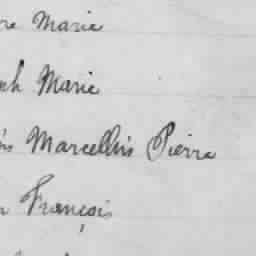 Marie
Marie
Marcellin Pierre
François